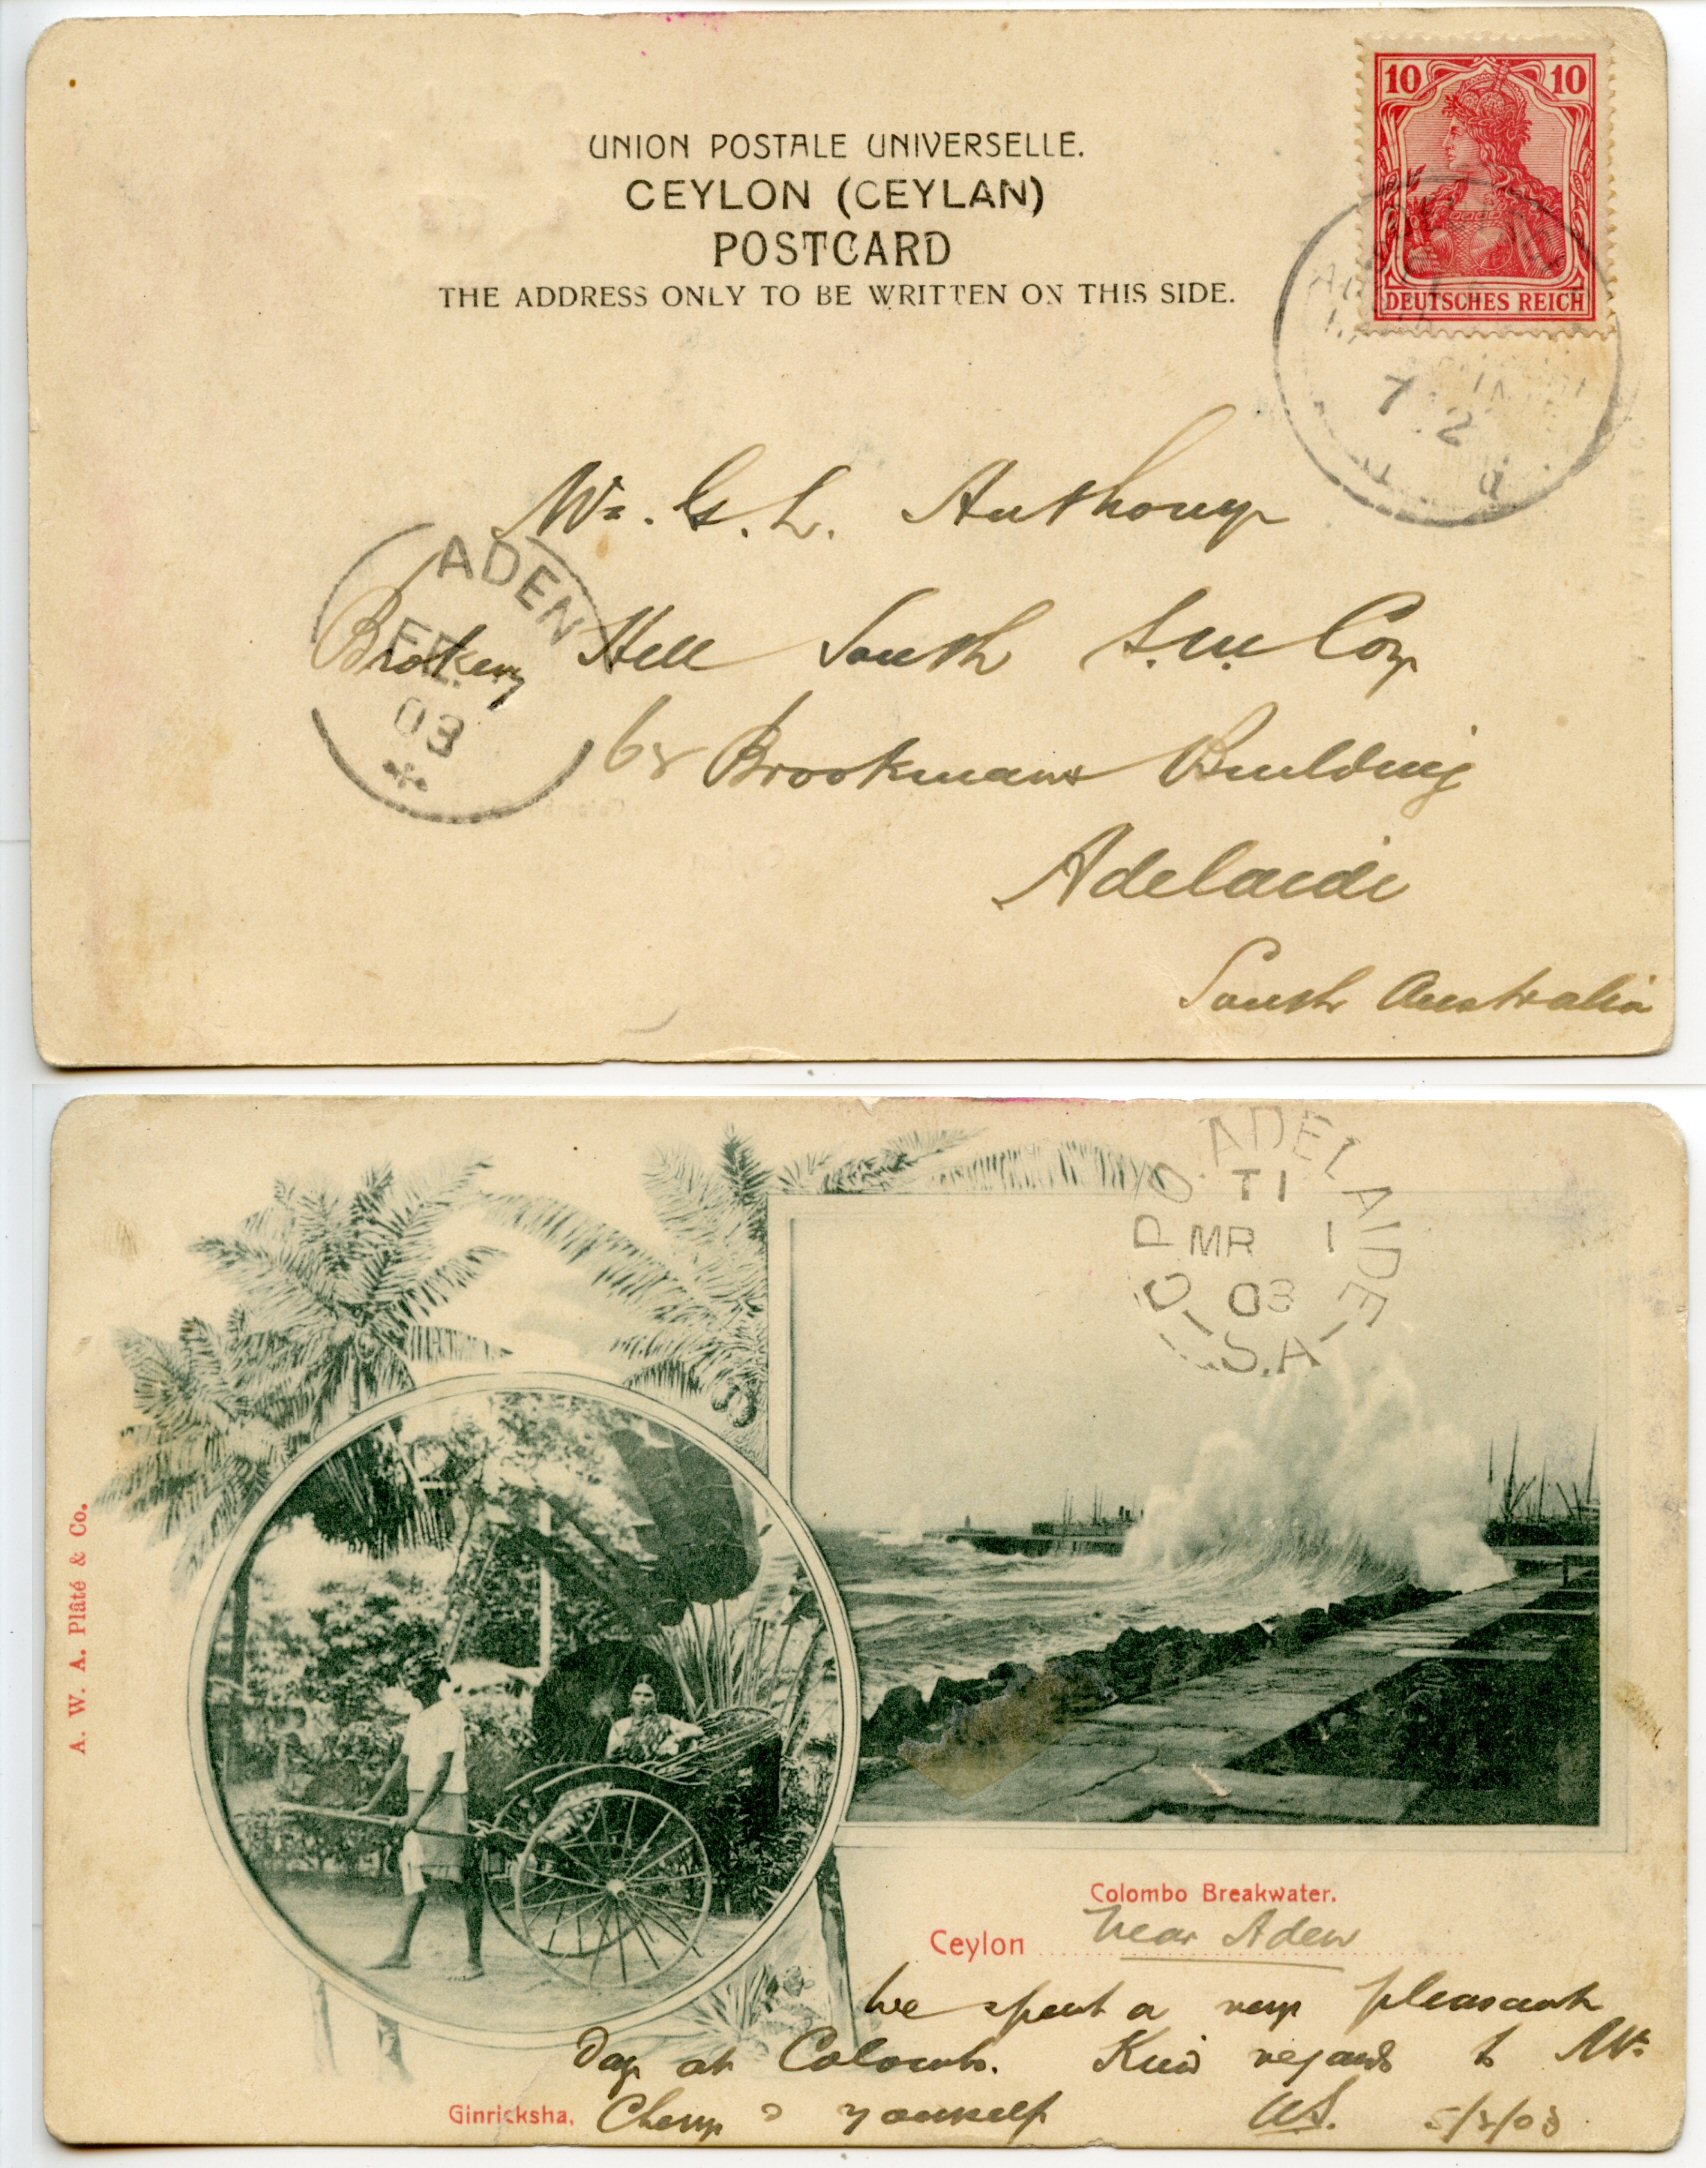 10 10
DEUTSCHES REICH
UNION POSTALE UNIVERSELLE.
CEYLON (CEYLAN)
POSTCARD
THE ADDRESS ONLY TO BE WRITTEN ON THIS SIDE.
7 2
a
Mr. G. L. Anthony
ADEN
FE.
03
Broken Hill South S. M. Coy
Brookmans Building
Adelaide
South Australia
G.P.O. ADELAIDE
T1
MR 1
03
S.A
A. W. A. Plâté & Co.
Colombo Breakwater.
Ceylon near Aden
We spent a very pleasant
day at Colombo. Kind regards to Mr
Cherry & yourself
Ginricksha.
5/2/03